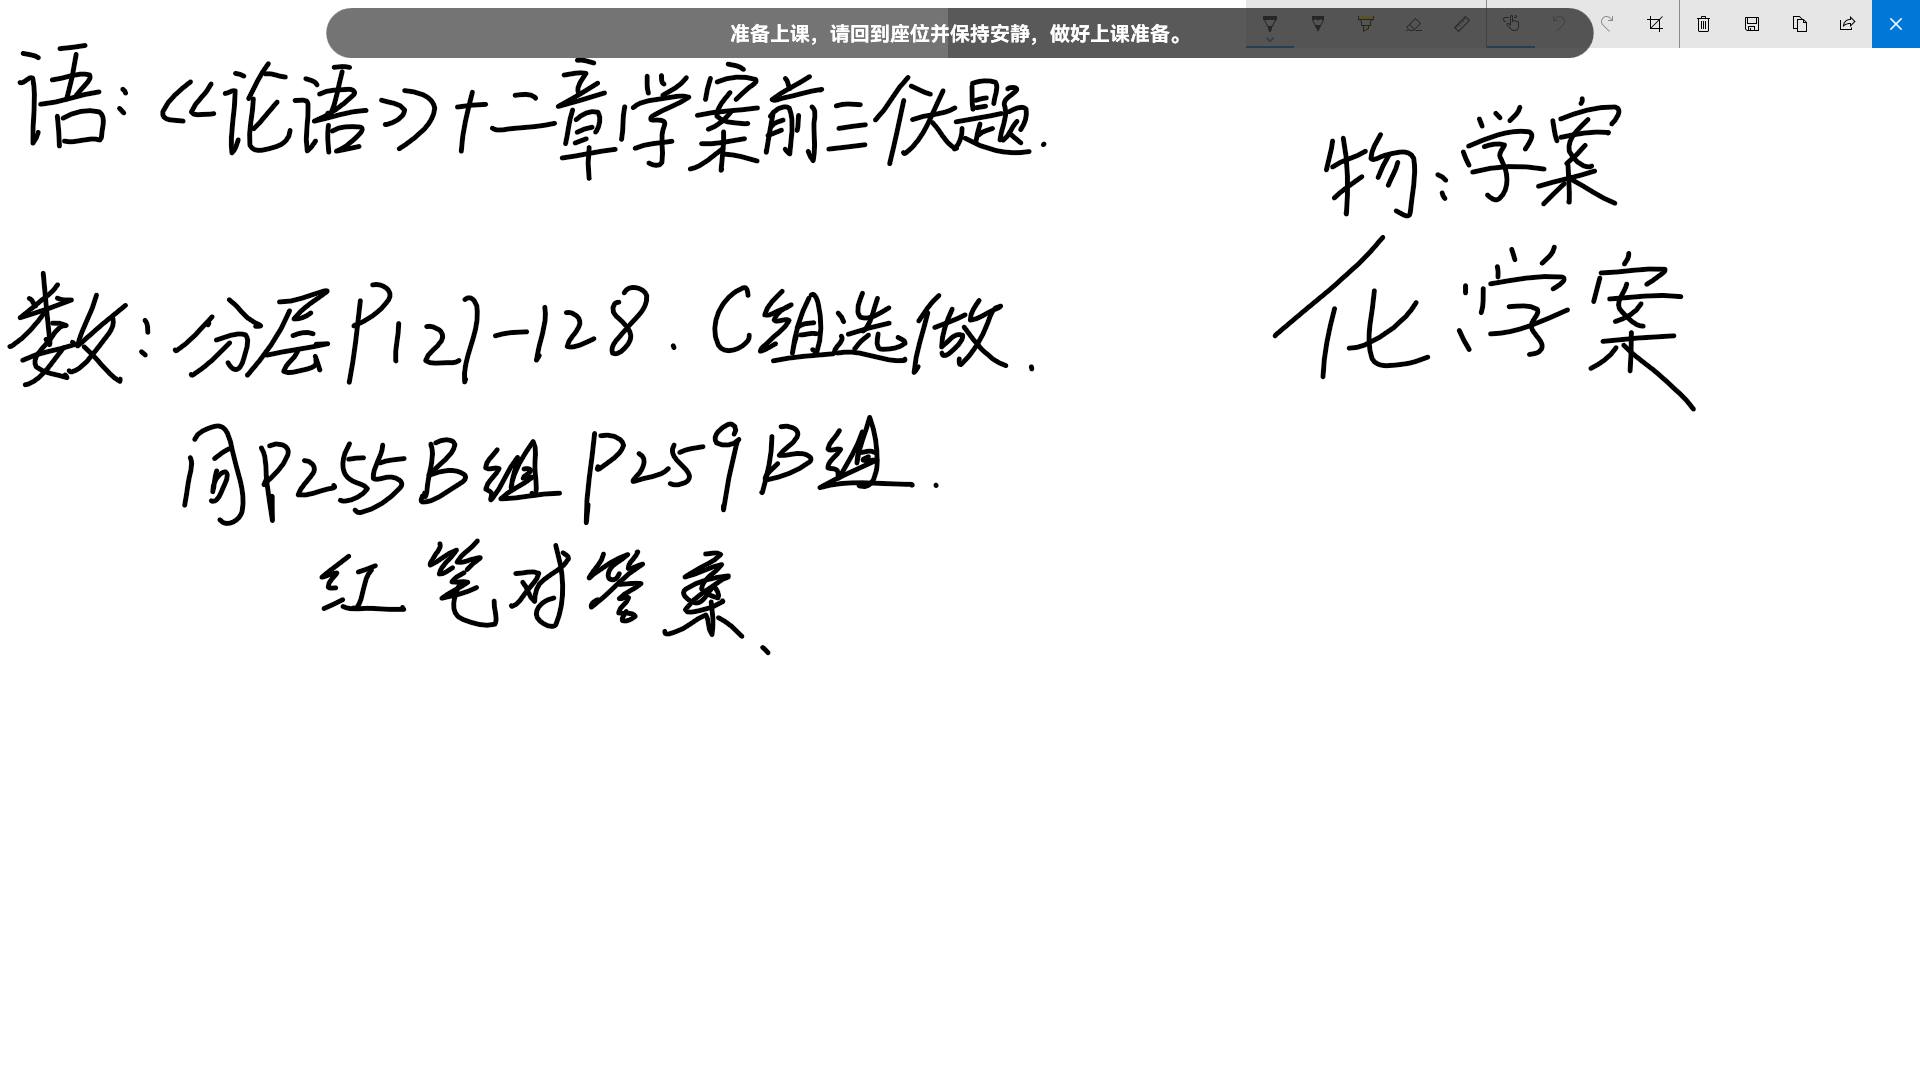 准备上课，请回到座位并保持安静，做好上课准备。
语：《论语》十二章学案前三伏题.
物：学案
化：学案
数：分层P127-128. C组选做.
同P255B组 P259B组.
红笔对答案、